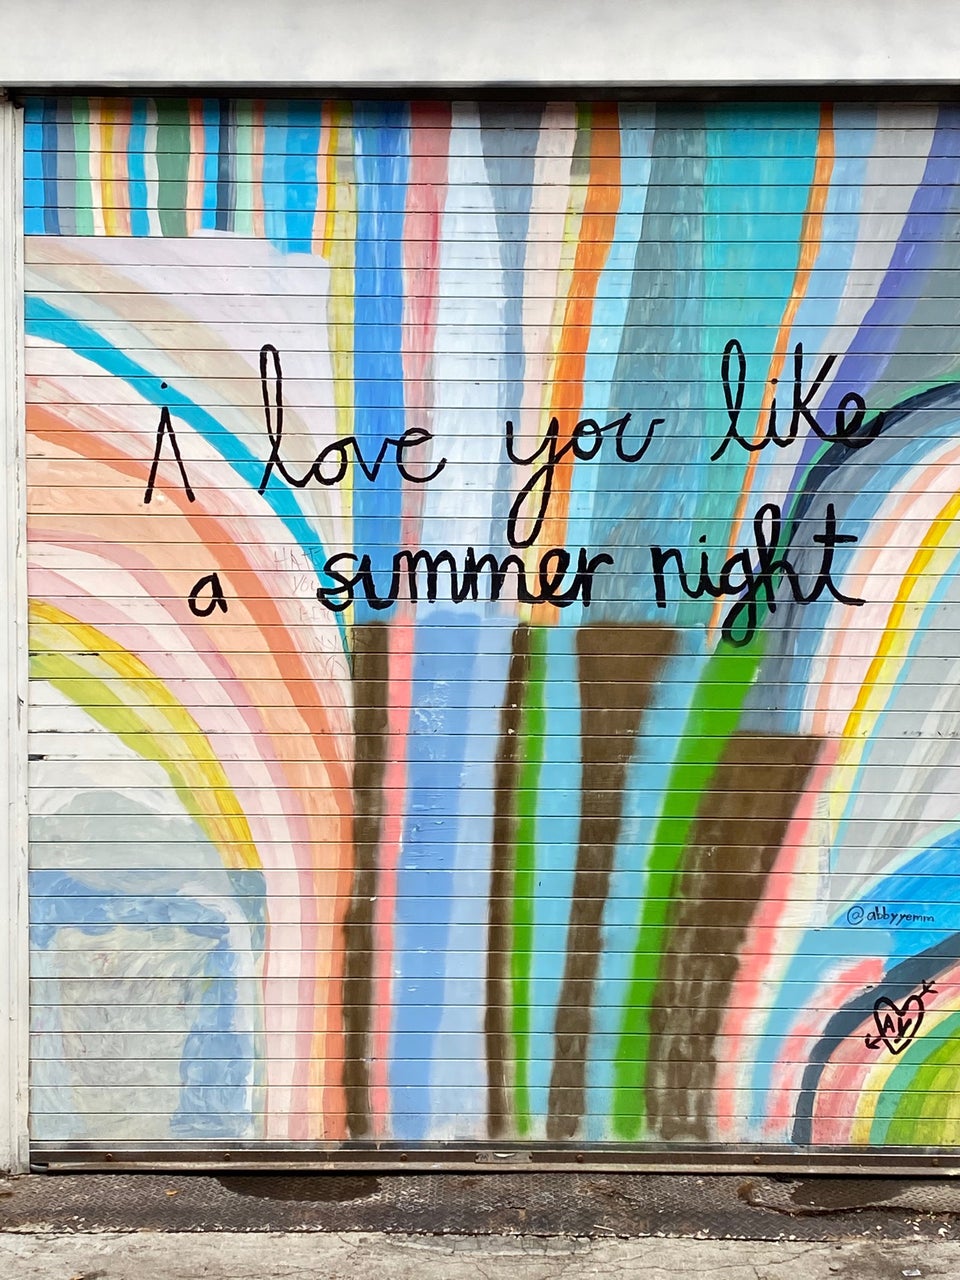 i love you like
a summer night
@abbyyemm
AK